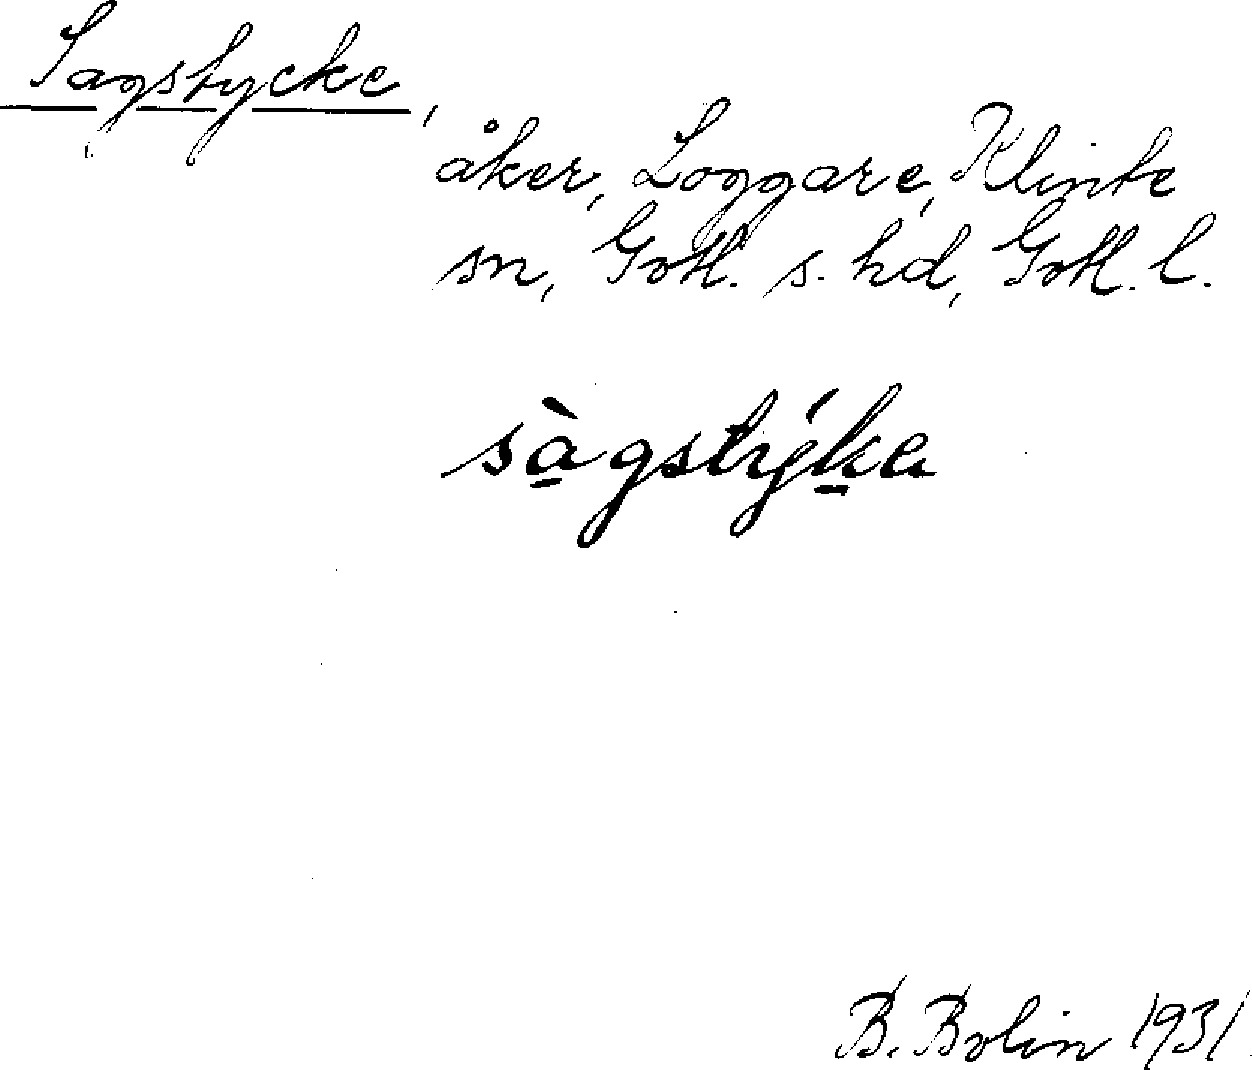 Sagstycke,
åker, Loggare, Klinte
sn, Gotl. s. hd, Gotl. l.
sàgstýka
B. Bolin 1931.